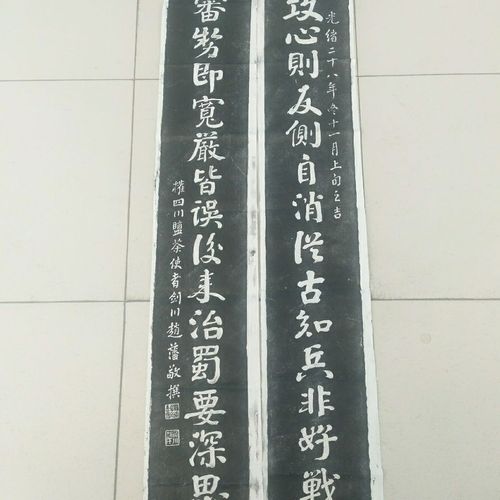 光緒二十八年冬十一月上旬之吉
攻心則反側自消從古知兵非好戰
審勢即寬嚴皆誤後來治蜀要深思
權四川鹽茶使者劍川趙藩敬撰